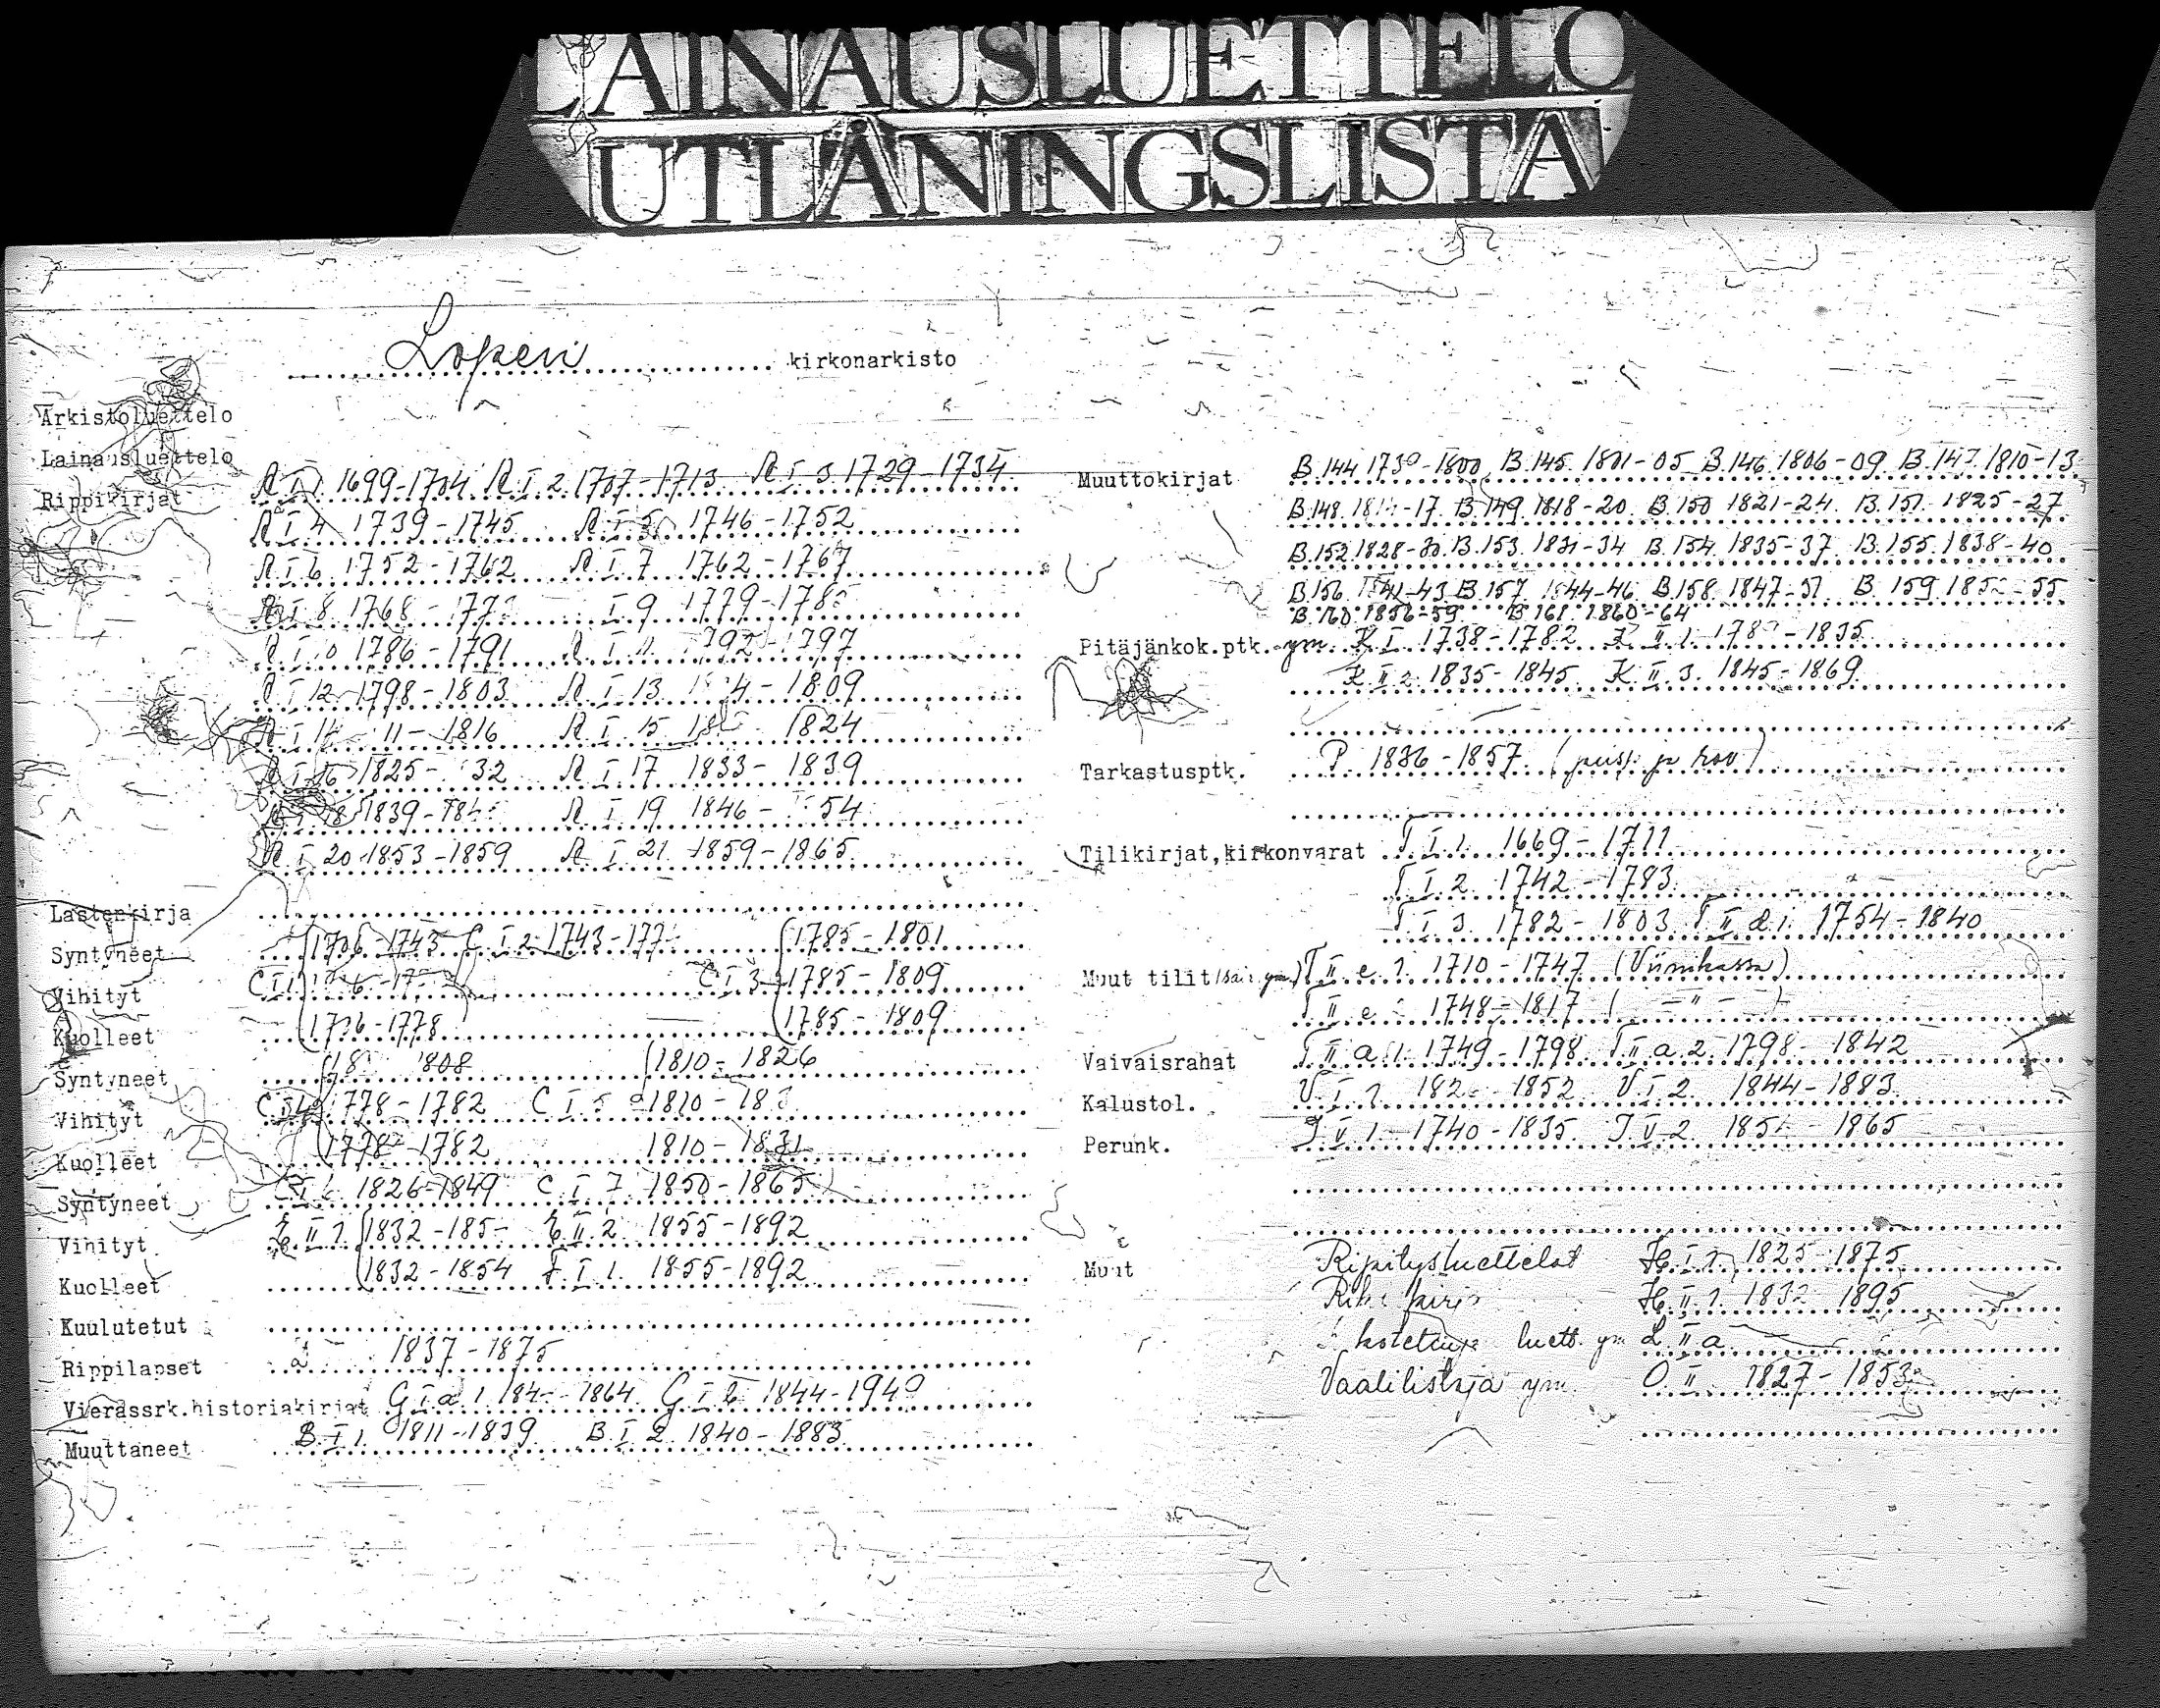 LAINAUSLUETTELO
UTLÅNINGSLISTA
Lopen kirkonarkisto
Arkistoluettelo
Lainausluettelo
Rippikirjat A I 1 1699-1704 A I 2 1707-1713 A I 3 1729-1734
A I 4 1739-1745 A I 5 1746-1752
A I 6 1752-1762 A I 7 1762-1767
A I 8 1768- I 9 1779-
A I 10 1786-1791 A I 11 1792-1797
A I 12 1798-1803 A I 13 -1809
A I 14 -1816 A I 15 1824
A I 16 1825- 32 A I 17 1833-1839
1839- A I 19 1846- 54
A I 20 1853-1859 A I 21 1859-1865
Lastenkirja
Syntyneet 1706-1743 C I 2 1743- 1785-1801
Vihityt C I 1 C I 3 1785-1809
Kuolleet 1706-1778 1785-1809
Syntyneet 1808 1810-1826
Vihityt 1778-1782 C I 5 1810-
Kuolleet 1778-1782 1810-1831
Syntyneet 1826-1849 C I 7 1850-1865
Vihityt E II 1 1832-185 E II 2 1855-1892
Kuolleet 1832-1854 F I 1 1855-1892
Kuulutetut
Rippilapset 1837-1875
Vierassrk.historiakirjat G I a 1 184 -1864 G I 1844-1949
Muuttaneet B I 1 1811-1839 B I 2 1840-1883
Muuttokirjat B.144 1730-1800 B.145 1801-05 B.146 1806-09 B.147 1810-13
B.148 -17 B.149 1818-20 B.150 1821-24 B.151 1825-27
B.152 1828-30 B.153 1831-34 B.154 1835-37 B.155 1838-40
B.156 1841-43 B.157 1844-46 B.158 1847-51 B 159 1852-55
B.160 1856-59 B 161 1860-64
Pitäjänkok.ptk. ym. K I 1738-1782 K II 1 -1835
K II 2 1835-1845 K II 3 1845-1869
Tarkastusptk. P 1836-1857 (
Tilikirjat,kirkonvarat T I 1 1669-1711
T I 2 1742-1783
T I 3 1782-1803 T II d 1 1754-1840
Muut tilit T II e 1 1710-1747 (Viinikassa)
T II e 1748-1817 ( -"- )
Vaivaisrahat T II a 1 1749-1798 T II a 2 1798-1842
Kalustol. V I 1 -1852 V I 2 1844-1883
Perunk. J V 1 1740-1835 J V 2 -1865
Muut Ripitysluettelot H I 1 1825-1875
H II 1 1832-1895
luett. ym L II a
Vaalilistoja ym. O II 1827-1853